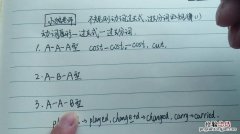 小姚老师 不规则动词过去式、过去分词的规律(1)
动词原形—过去式—过去分词
1. A-A-A型 cost-cost-cost, cut.
2. A-B-A型
3. A-A-B型
→ played, change+d → changed, carry → carried.